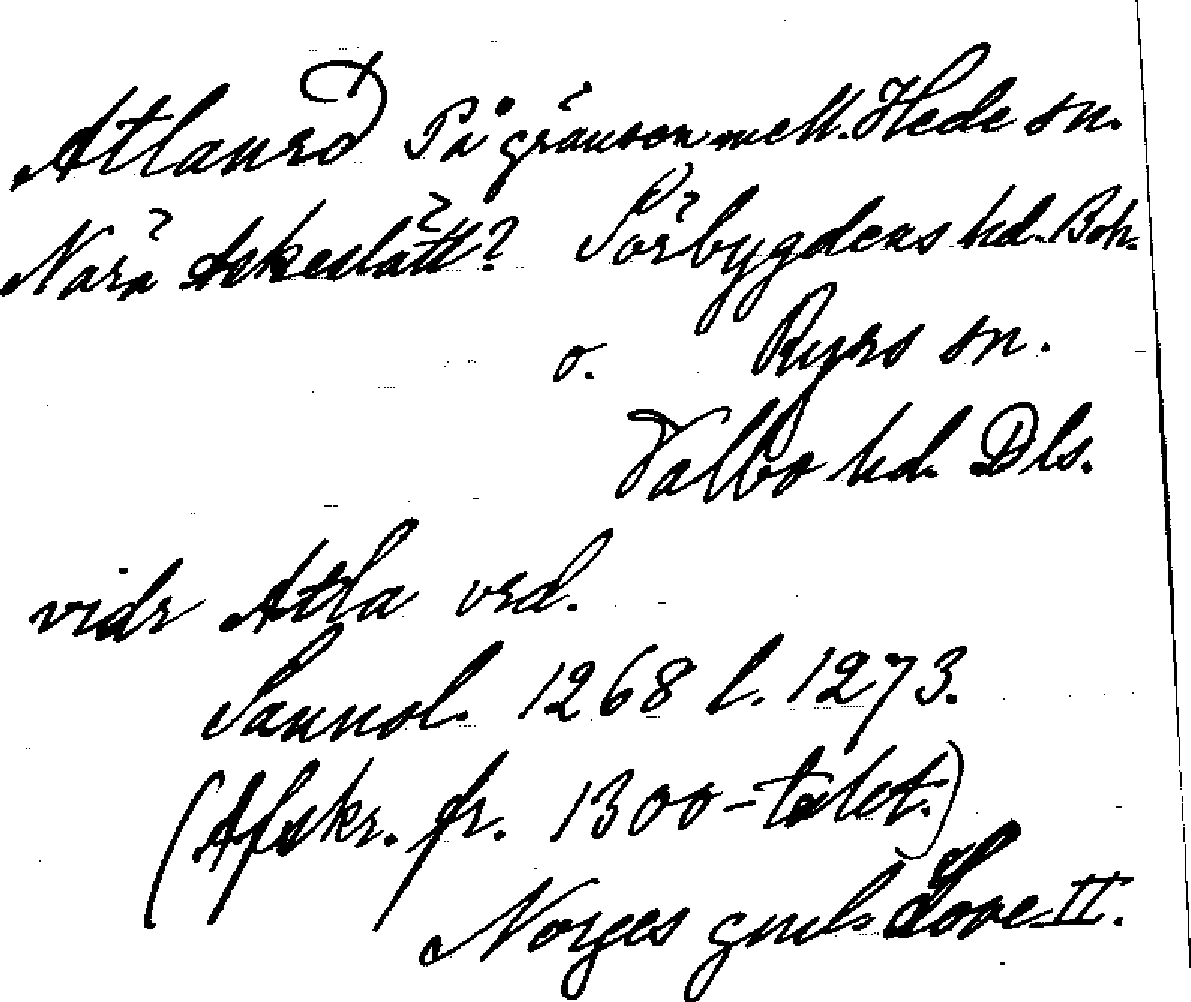 Atlanrd På gränsen mell. Hede sn.
Nära Askeslätt? Sörbygdens hd. Boh.
o. Ryrs sn.
Valbo hd. Dls.
vidr Atla vrd.
Sannol. 1268 l. 1273.
(Afskr. fr. 1300-talet.)
Norges gml. Love II.